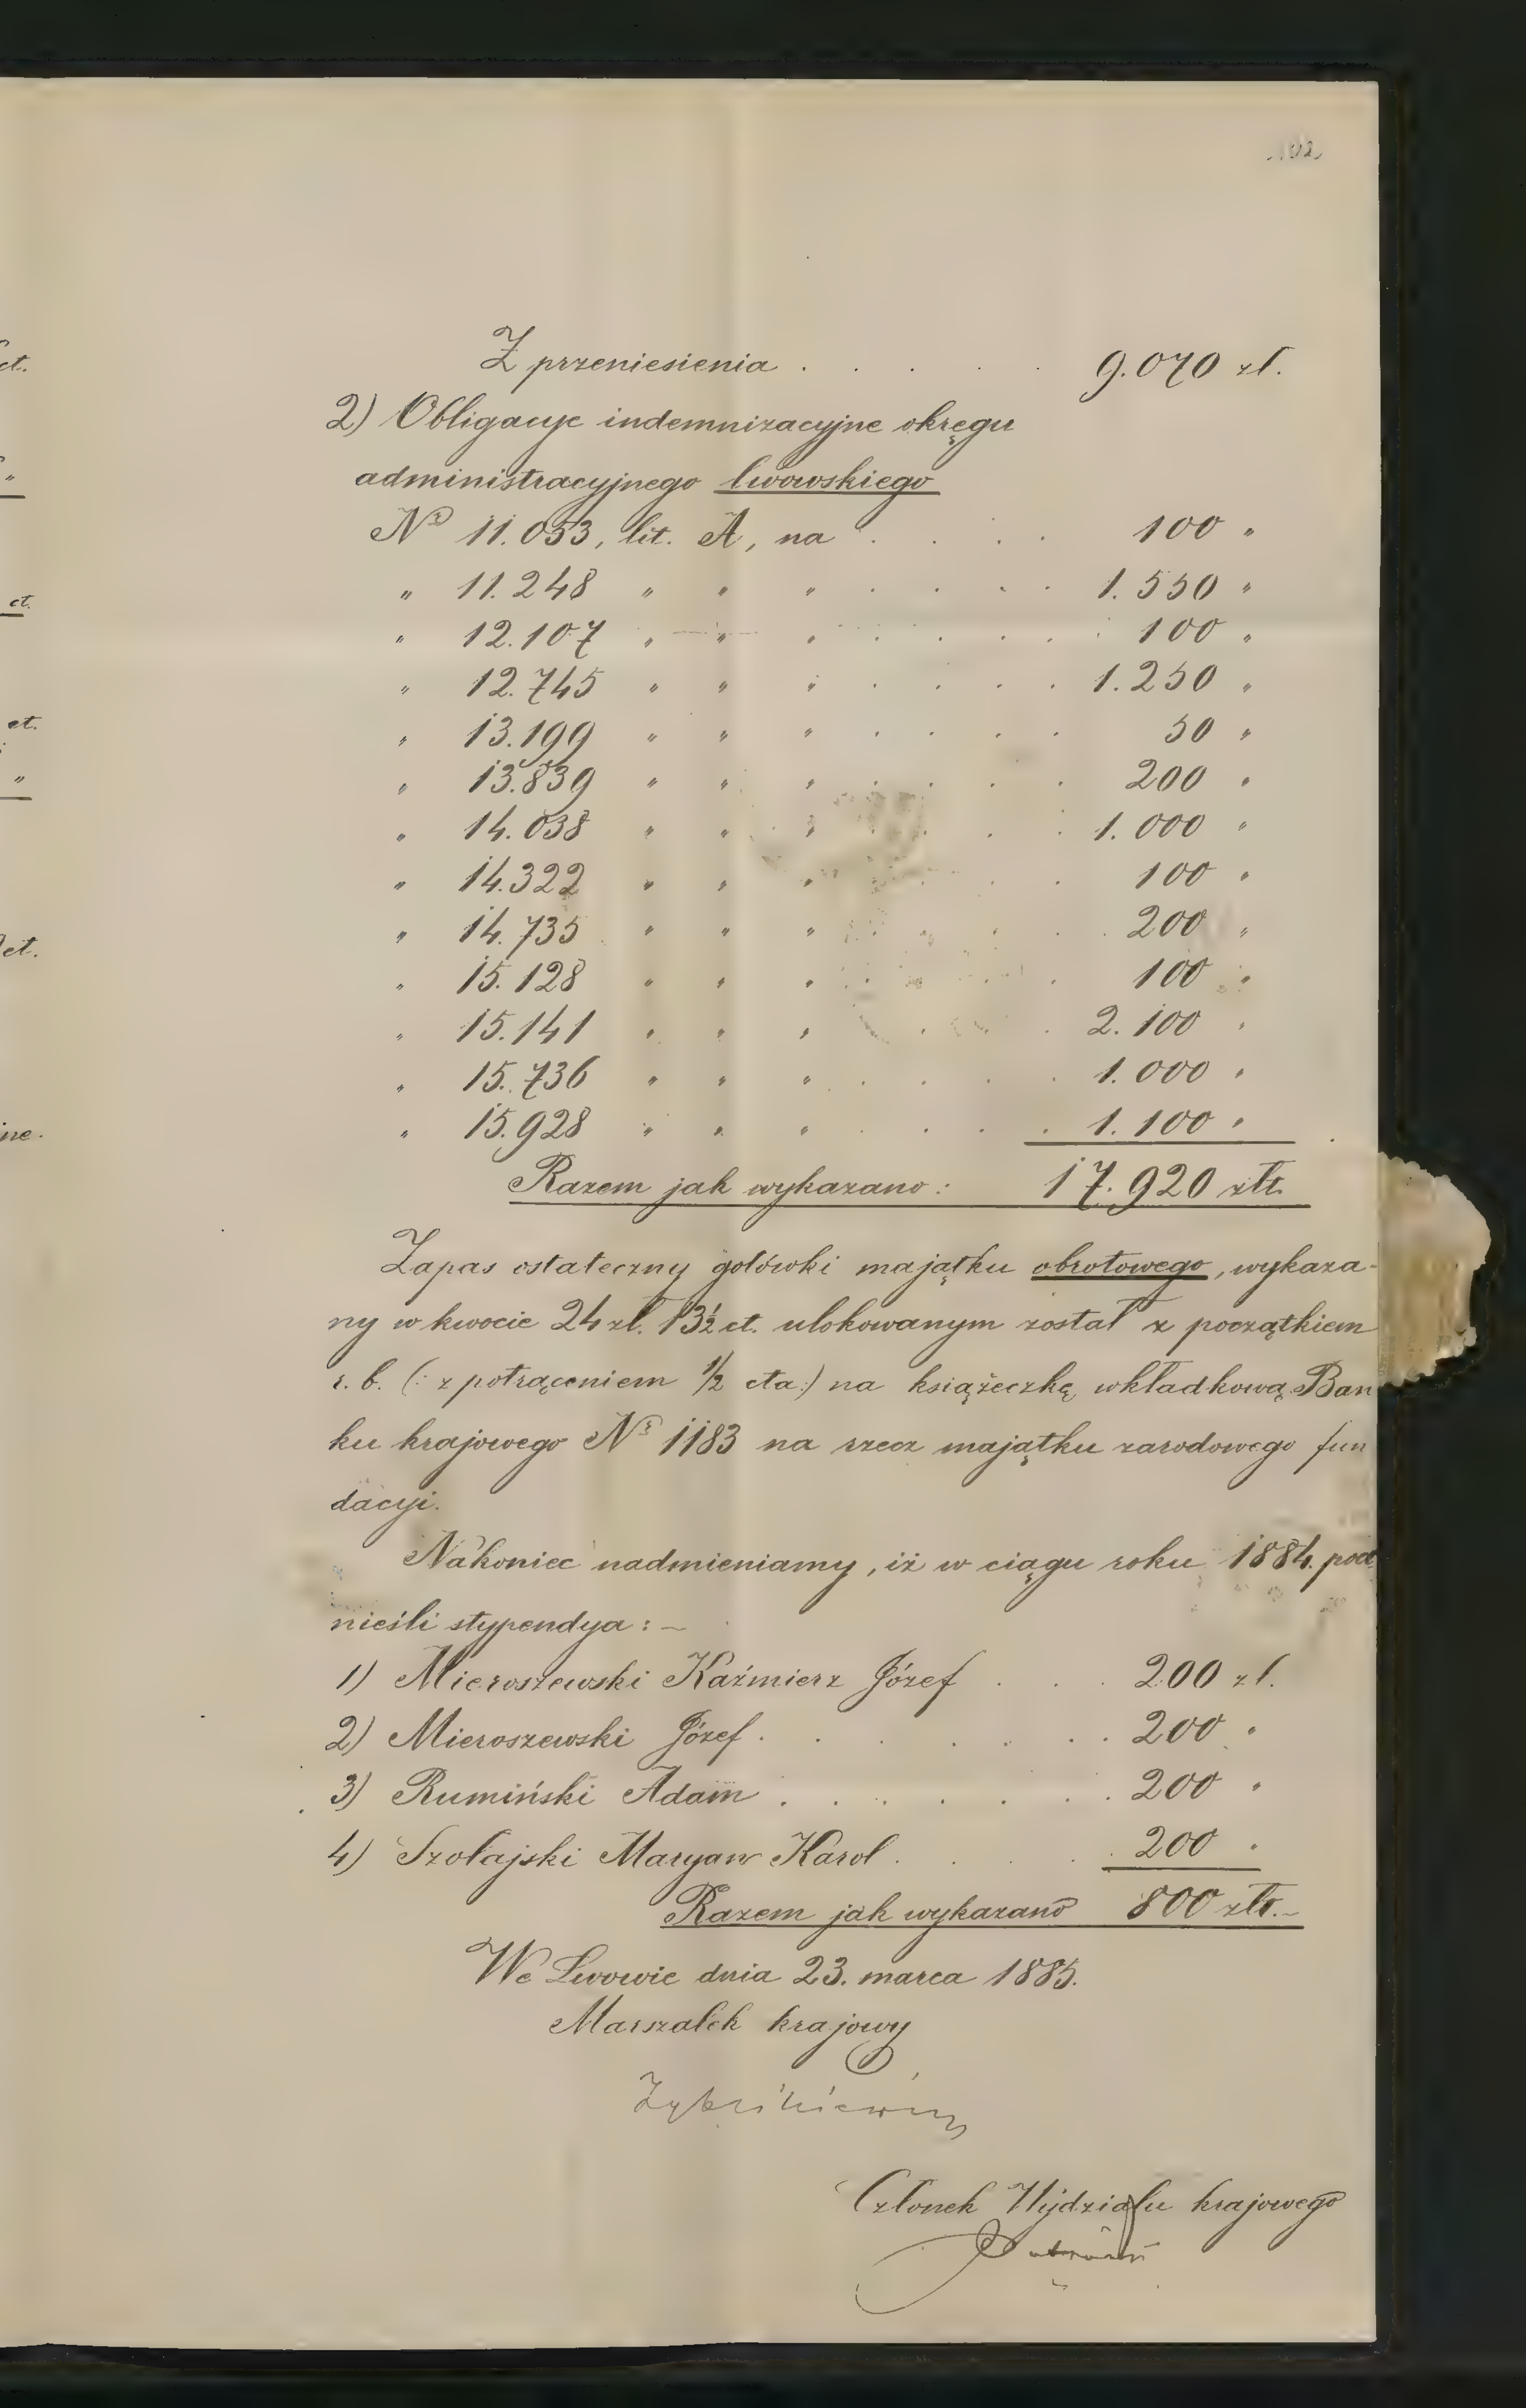 102
Z przeniesienia . . . . 9.070 zł.
2) Obligacye indemnizacyjne okręgu
administracyjnego lwowskiego
Nr 11.053, lit. A, na . . . . 100 "
" 11.248 " " " . . . . 1.550 "
" 12.107 " " " . . . . 100 "
" 12.745 " " " . . . . 1.250 "
" 13.199 " " " . . . . 50 "
" 13.839 " " " . . . . 200 "
" 14.038 " " " . . . . 1.000 "
" 14.322 " " " . . . . 100 "
" 14.735 " " " . . . . 200 "
" 15.128 " " " . . . . 100 "
" 15.141 " " " . . . . 2.100 "
" 15.736 " " " . . . . 1.000 "
" 15.928 " " " . . . . 1.100 "
Razem jak wykazano: 17.920 złr.
Zapas ostateczny gotówki majątku obrotowego, wykaza-
ny w kwocie 24 zł. 13½ ct. ulokowanym został z początkiem
r. b. (: z potrąceniem ½ cta :) na książeczkę wkładkową Ban
ku krajowego Nr 1183 na rzecz majątku zarodowego fun
dacyi.
Nakoniec nadmieniamy, iż w ciągu roku 1884. pod
nieśli stypendya: –
1) Mieroszewski Kaźmierz Józef . . . 200 zł.
2) Mieroszewski Józef . . . . . . 200 "
3) Rumiński Adam . . . . . . 200 "
4) Szołajski Maryan Karol . . . . 200 "
Razem jak wykazano 800 złr. –
We Lwowie dnia 23. marca 1885.
Marszałek krajowy
Zyblikiewicz
Członek Wydziału krajowego
ct.
"
ct.
ct.
"
ct.
ine.